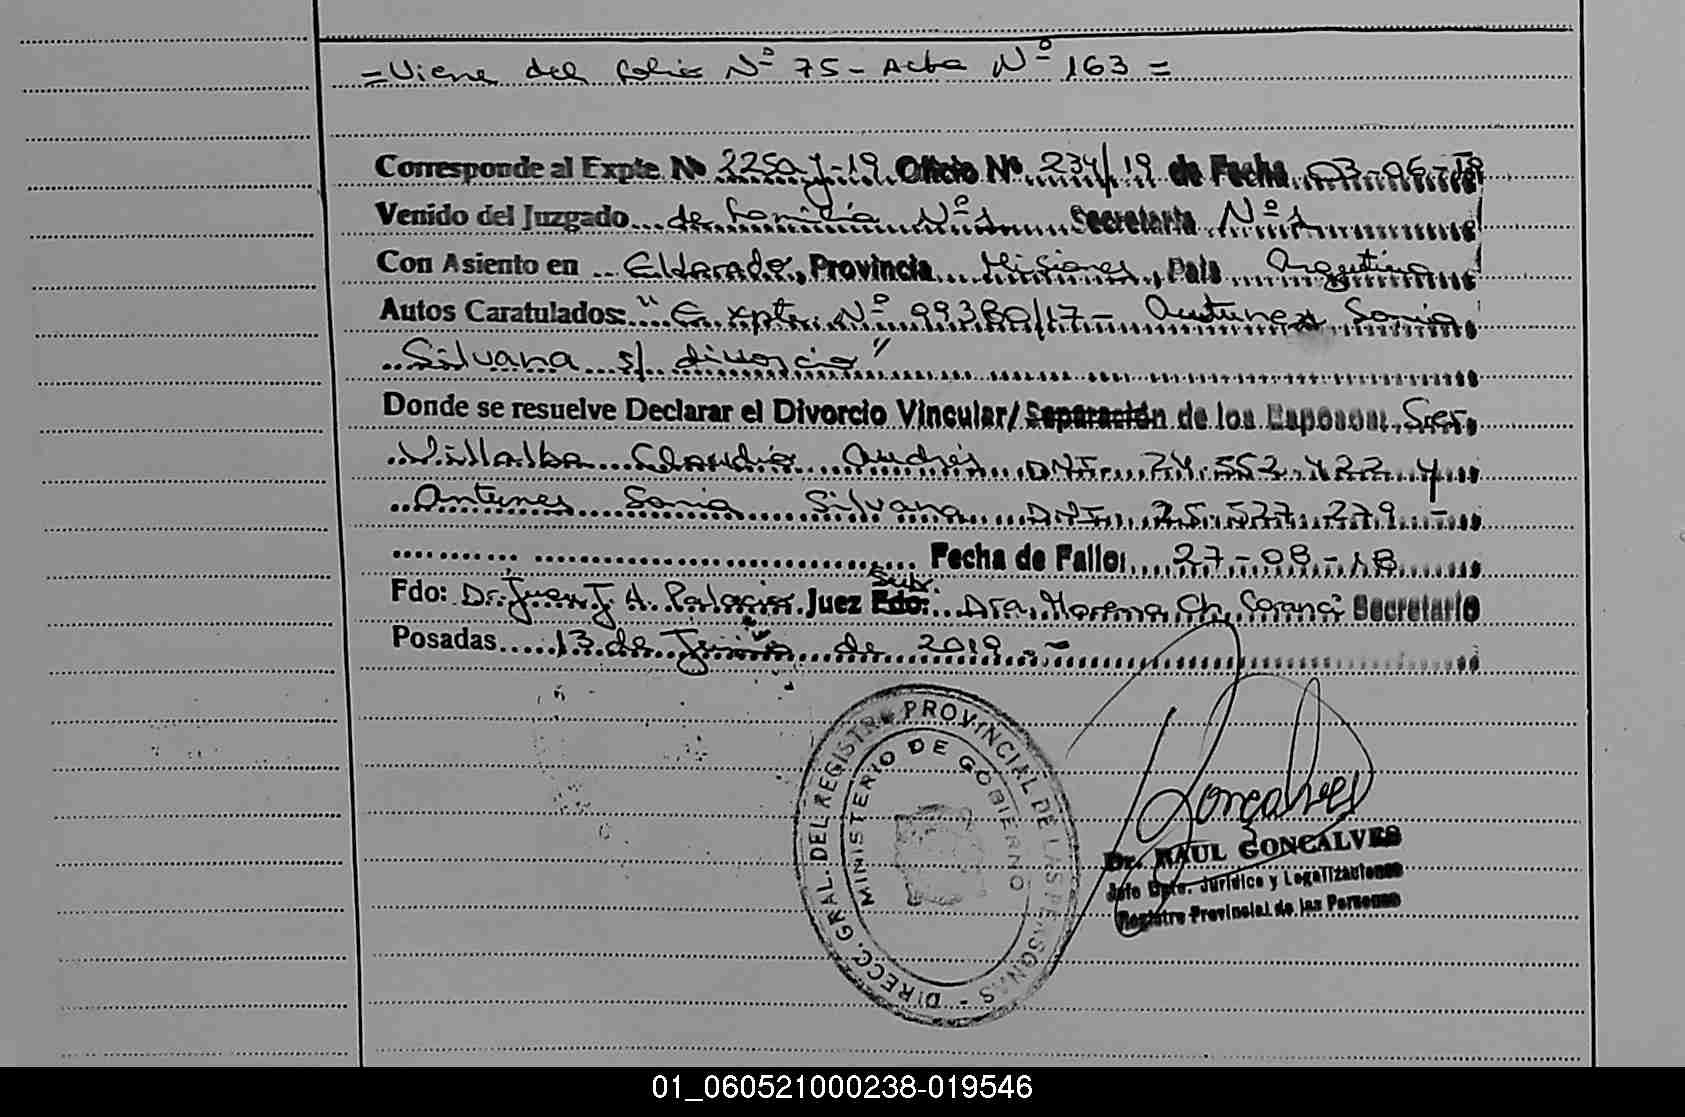 =Viene del folio Nº 75 - Acta Nº 163 =
Corresponde al Expte. Nº 2250-J-19 Oficio Nº 234/19 de Fecha 03-06-19
Venido del Juzgado de familia Nº 1 Secretaria Nº 1
Con Asiento en Eldorado, Provincia Misiones, Pais Argentina
Autos Caratulados: "Expte. Nº 99380/17 - Antunes Sonia
Silvana s/ divorcio"
Donde se resuelve Declarar el Divorcio Vincular/Separación de los Esposos: Sres.
Villalba Claudio Andrés DNI. 24.552.422 y
Antunes Sonia Silvana DNI. 25.577.279.-
Fecha de Fallo: 27-08-18
Fdo: Dr. Juan J. A. Palacio Juez Sub. Fdo: Dra. Morena Ch. Secretario
Posadas 13 de Junio de 2019.-
DIRECC. GRAL. DEL REGISTRO PROVINCIAL DE LAS PERSONAS -
MINISTERIO DE GOBIERNO
Dr. RAUL GONCALVES
Jefe Dpto. Jurídico y Legalizaciones
Registro Provincial de las Personas
01_060521000238-019546